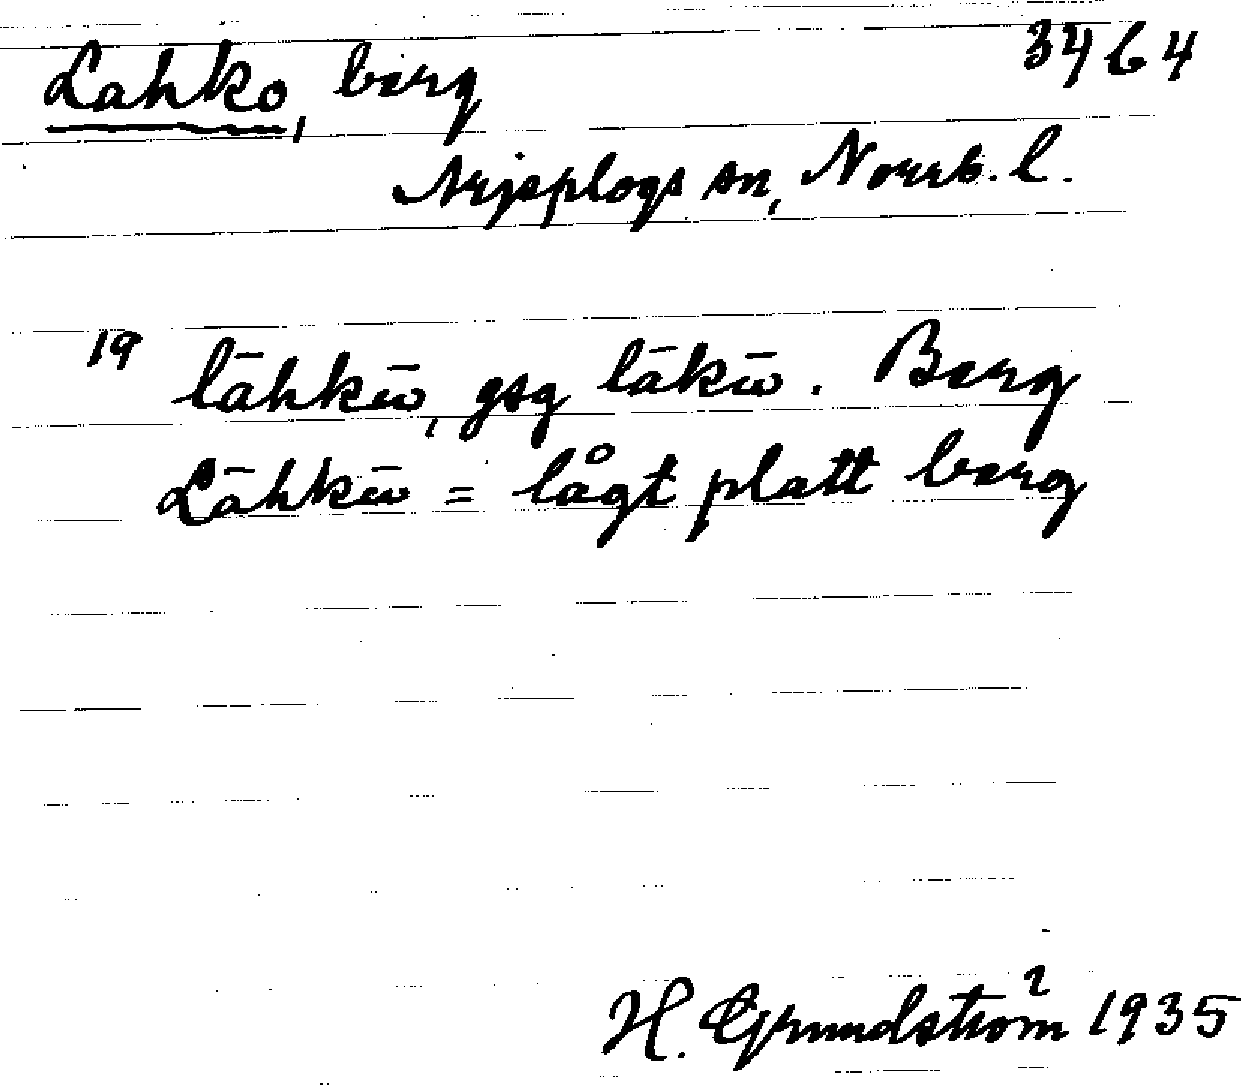 Lahko, berg 3464
Arjeplogs sn, Norrb. l.
19 lāhkūo, gsg lākūo. Berg
Lāhkūo = lågt platt berg
H. Grundström 1935